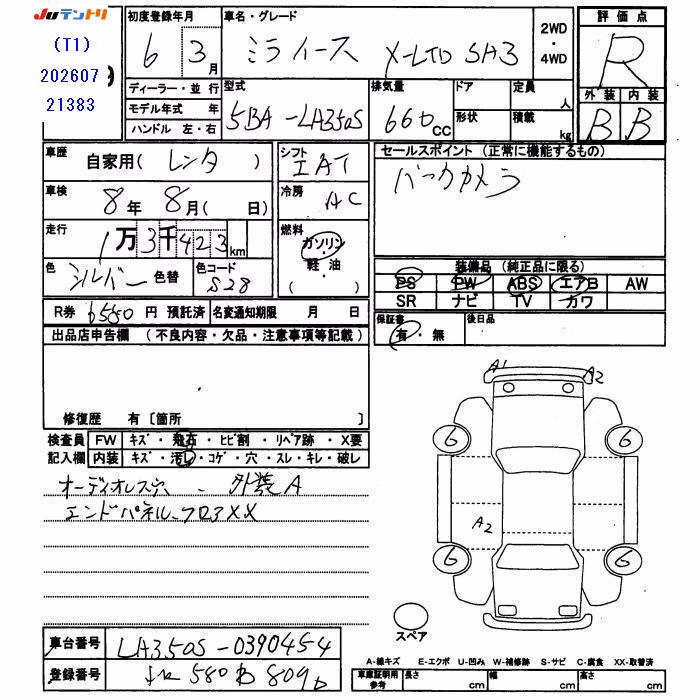 Juテントリ
(T1)
202607
21383
初度登録年月
6 3月
車名・グレード
ミライース X-LTD SA3
2WD・4WD
評価点
R
外装 内装
B B
ディーラー・並行
モデル年式 年
ハンドル 左・右
型式
5BA-LA350S
排気量
660cc
ドア
形状
定員 人
積載 kg
車歴
自家用(レンタ)
シフト
IAT
車検
8年8月( 日)
冷房
AC
走行
1万3千423km
燃料
ガソリン・軽油
( )
色
シルバー 色替
色コード
S28
セールスポイント(正常に機能するもの)
バックカメラ
装備品(純正品に限る)
PS PW ABS エアB AW
SR ナビ TV カワ
R券 6550円 預託済 名変通知期限 月 日
保証書
有・無
後日品
出品店申告欄(不良内容・欠品・注意事項等記載)
修復歴 有〔箇所 〕
検査員記入欄
FW キズ・飛石・ヒビ割・リペア跡・X要
内装 キズ・汚レ・コゲ・穴・スレ・キレ・破レ
オーディオレス穴、外装A
エンドパネル、フロアXX
A1 A2
6 6
A2
6 6
スペア
車台番号 LA350S-0390454
登録番号 580 809
A-線キズ E-エクボ U-凹み W-補修跡 S-サビ C-腐食 XX-取替済
車庫証明用参考 長さ cm 幅 cm 高さ cm